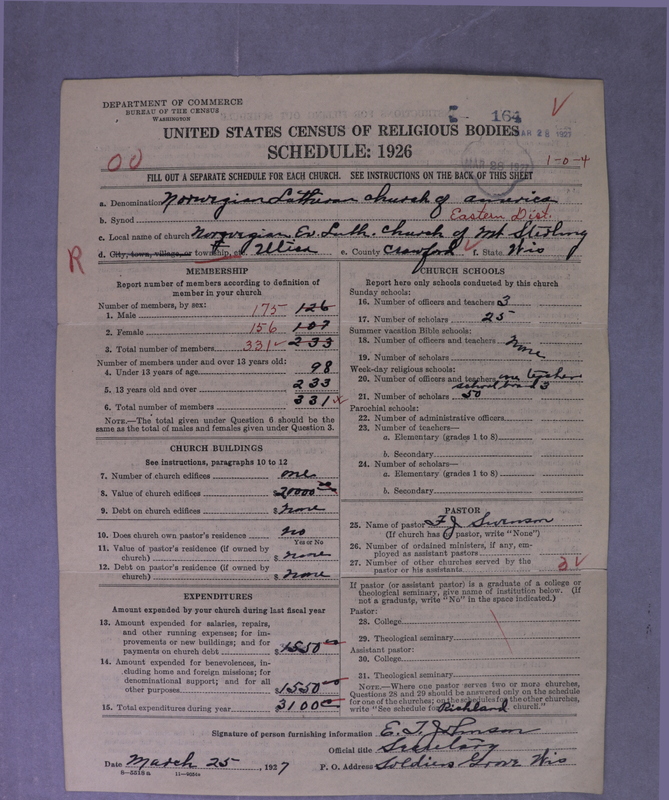 DEPARTMENT OF COMMERCE
BUREAU OF THE CENSUS
WASHINGTON
164
MAR 28 1927
UNITED STATES CENSUS OF RELIGIOUS BODIES
SCHEDULE: 1926
1-0-4
FILL OUT A SEPARATE SCHEDULE FOR EACH CHURCH. SEE INSTRUCTIONS ON THE BACK OF THIS SHEET
a. Denomination Norwegian Lutheran church of america
b. Synod Eastern Dist.
c. Local name of church Norwegian Ev. Luth. Church of Mt Sterling
R d. City, town, village, or township, etc. Utica e. County Crawford f. State Wis
MEMBERSHIP
Report number of members according to definition of
member in your church
Number of members, by sex:
1. Male 175 126
2. Female 156 107
3. Total number of members 331 233
Number of members under and over 13 years old:
4. Under 13 years of age 98
5. 13 years old and over 233
6. Total number of members 331
NOTE.—The total given under Question 6 should be the
same as the total of males and females given under Question 3.
CHURCH BUILDINGS
See instructions, paragraphs 10 to 12
7. Number of church edifices one
8. Value of church edifices $20000 00
9. Debt on church edifices $ none
10. Does church own pastor's residence? no
Yes or No
11. Value of pastor's residence (if owned by
church) $ none
12. Debt on pastor's residence (if owned by
church) $ none
EXPENDITURES
Amount expended by your church during last fiscal year
13. Amount expended for salaries, repairs,
and other running expenses; for im-
provements or new buildings; and for
payments on church debt $1550 00
14. Amount expended for benevolences, in-
cluding home and foreign missions; for
denominational support; and for all
other purposes $1550 00
15. Total expenditures during year $3100 00
CHURCH SCHOOLS
Report here only schools conducted by this church
Sunday schools:
16. Number of officers and teachers 3
17. Number of scholars 25
Summer vacation Bible schools:
18. Number of officers and teachers None
19. Number of scholars
Week-day religious schools:
20. Number of officers and teachers one teacher
school board 3
21. Number of scholars 50
Parochial schools:
22. Number of administrative officers
23. Number of teachers—
a. Elementary (grades 1 to 8)
b. Secondary
24. Number of scholars—
a. Elementary (grades 1 to 8)
b. Secondary
PASTOR
25. Name of pastor F J Swenson
(If church has no pastor, write "None")
26. Number of ordained ministers, if any, em-
ployed as assistant pastors
27. Number of other churches served by the
pastor or his assistants 2
If pastor (or assistant pastor) is a graduate of a college or
theological seminary, give name of institution below. (If
not a graduate, write "No" in the space indicated.)
Pastor:
28. College
29. Theological seminary
Assistant pastor:
30. College
31. Theological seminary
NOTE.—Where one pastor serves two or more churches,
Questions 28 and 29 should be answered only on the schedule
for one of the churches; on the schedules for the other churches,
write "See schedule for Richland church."
Signature of person furnishing information E. T. Johnson
Official title Secretary
Date March 25, 1927 P. O. Address Soldiers Grove Wis